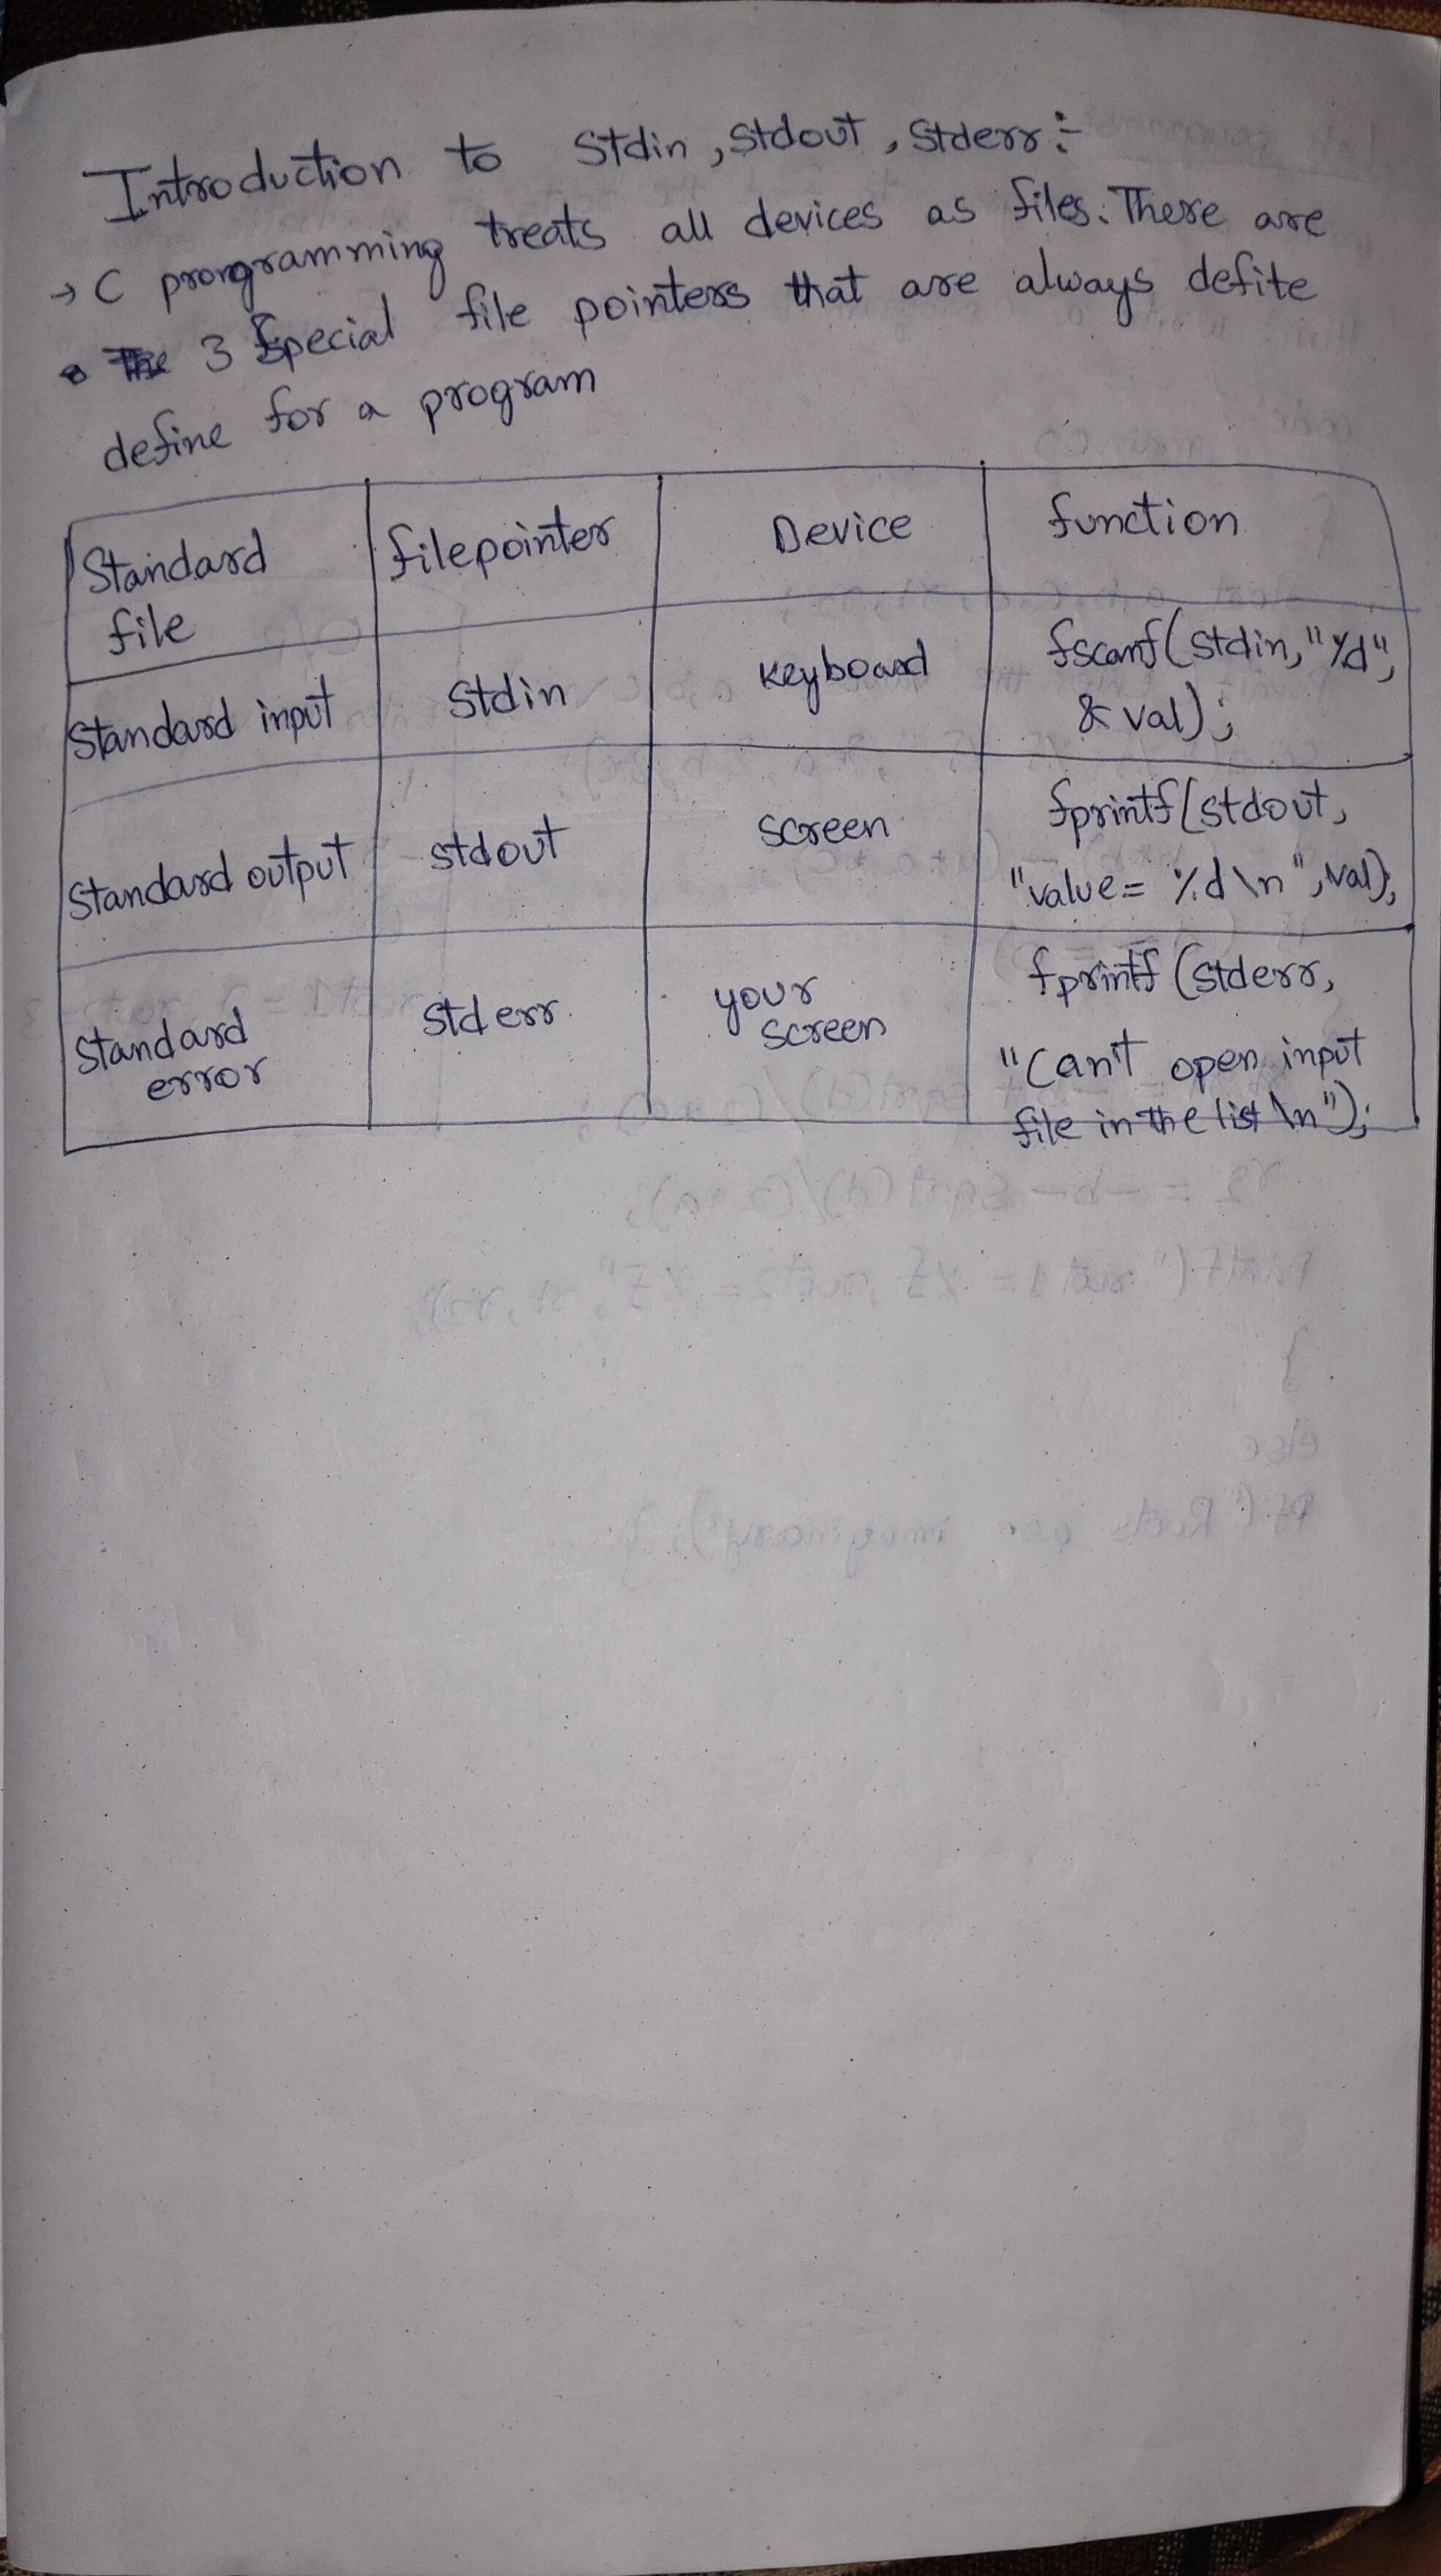 Introduction to stdin, stdout, stderr:-
→ C prongramming treats all devices as files. There are
The 3 special file pointers that are always defite
define for a program
Standard file | filepointer | Device | function
Standard input | stdin | keyboard | fscanf(stdin, "%d",
& val);
Standard output | stdout | screen | fprintf(stdout,
"value= %d \n", val);
Standard error | stderr | your screen | fprintf (stderr,
"Can't open input
file in the list \n");